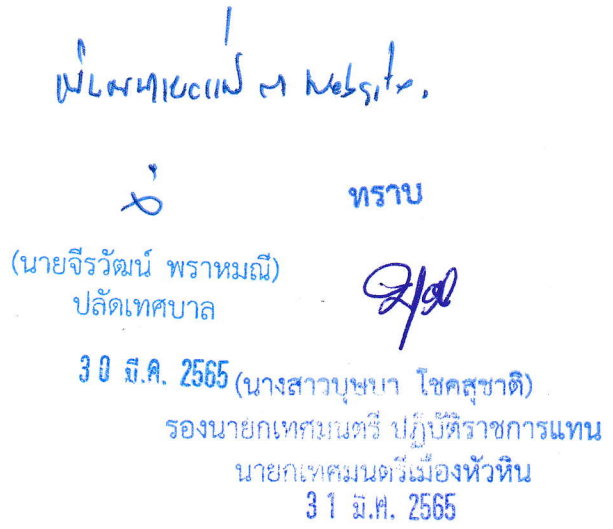 Website.
ทราบ
(นายจีรวัฒน์ พราหมณี)
ปลัดเทศบาล
30 มี.ค. 2565
(นางสาวบุษบา โชคสุชาติ)
รองนายกเทศมนตรี ปฏิบัติราชการแทน
นายกเทศมนตรีเมืองหัวหิน
31 มี.ค. 2565